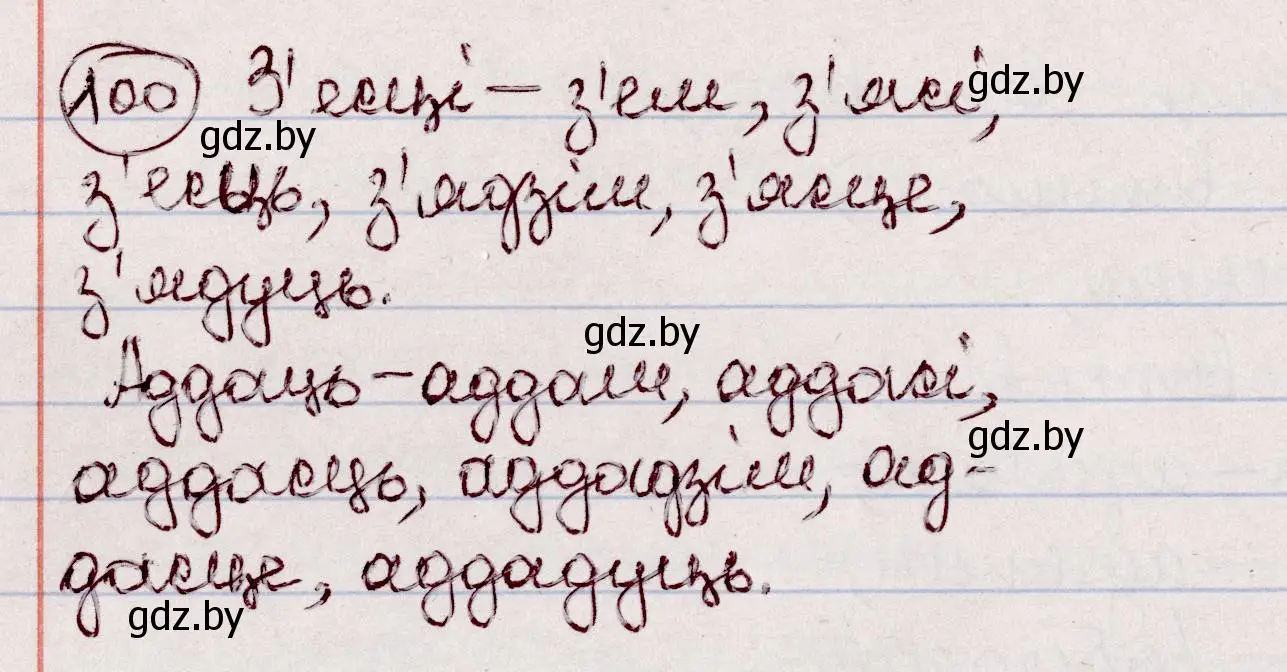 100 З'есці – з'ем, з'ясі,
gdz.by
gdz.by
з'есць, з'ядзім, з'ясце,
з'ядуць.
gdz.by
Аддаць – аддам, аддасі,
gdz.by
аддасць, аддадзім, ад-
дасце, аддадуць.
gdz.by